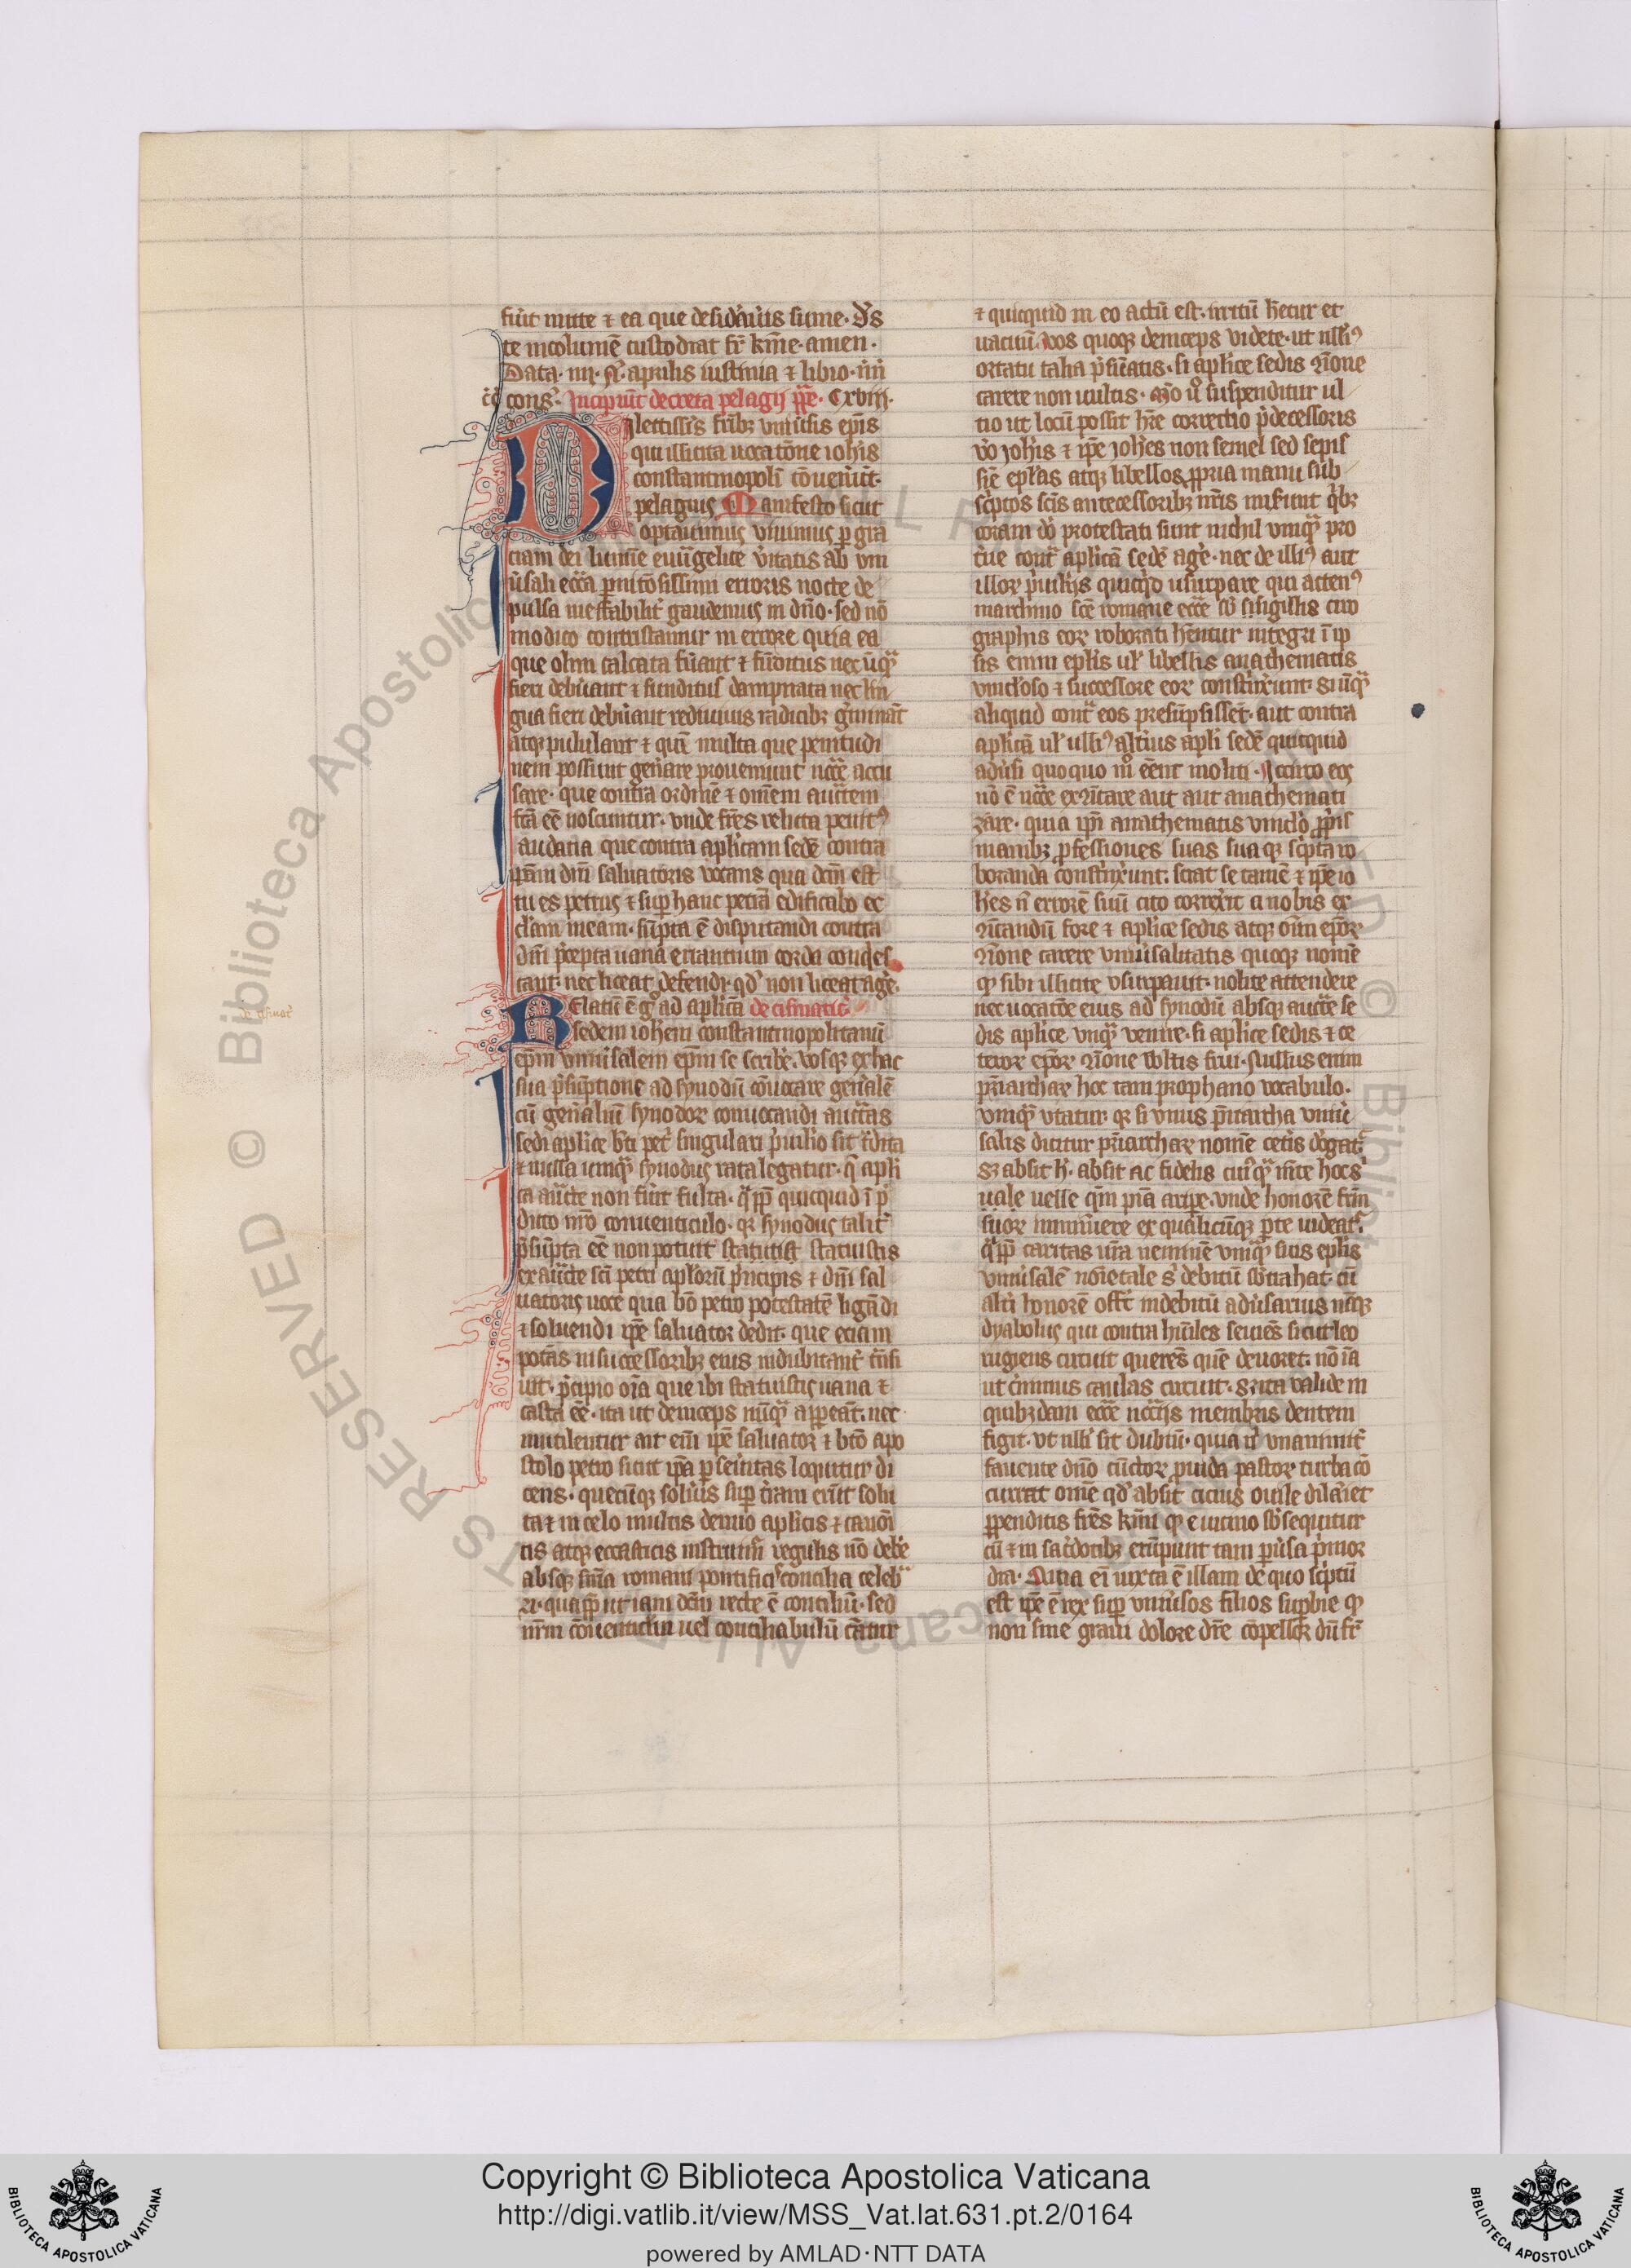 fu̅it mitte ⁊ ea que desid̾auis sume. De̅s
te incolume̅ custodiat fr̅ km̅e. amen.
Data. iiij. k̅l. aprilis iustinia ⁊ libro. iiij
co̅ cons̾. Incipiu̅t decreta pelagij pp̅e. Cxviij.
Dilectissi̅s fr̅ibꝫ vniu̅sis ep̅is
qui illicita uocat̅one ioh̅is
constantinopoli̅ co̅uen̅u̅t.
pelagius Manifesto sicut
optauimus viuimus ꝑ gra
ciam dei lumi̅e euu̅gelice v̾itatis ab vni
u̅sali ecc̅a ꝑnico̅sissimi erroris nocte de
pulsa ineffabilit̾ gaudemus in dn̅o. sed no̅
modico contristamur in errore quia ea
que olim calcata fu̅ant ⁊ fu̅ditus nec u̅qᷓ
fieri debu̅ant ⁊ funditus dampnata nec lin
gua fieri debu̅ant rediuiuis radicibꝫ g̾minãt
atqꝫ pululant ⁊ que̅ multa que penitudi
nem possunt gen̾are proueniunt ncc̅e accu
sare. que contra ordine̅ ⁊ om̅em auct̅em
fc̅a ee̅ noscuntur. vnde fr̅es relicta penitꝰ
audatia que contra aplicam sede̅ contra
ꝑtẽm dn̅i saluatoris vocans qua dc̅m est
tu es petrus ⁊ suꝑ hanc petra̅ edificabo ec
cliam meam. su̅pta e̅ disputandi contra
dn̅i p̾cepta uana errantium corda conqies
cant. nec liceat defendi qd̾ non liceat ag̾e.
Relatu̅ e̅ g̊ ad aplica̅ de cismatic̾
sedem iohem constantinopolitanu̅
ep̅m vniu̅salem ep̅m se scribe̾. vosqꝫ ex hac
sua p̾su̅ptione ad synodu̅ co̅uocare gen̾ale̅
cu̅ gen̾aliu̅ synodoꝝ conuocandi auct̅as
sedi aplice bt̅i pet̾ singulari p̾uil̾io sit t̾dita
⁊ nulla umqᷓ synodus rata legatur. q̅ apli
ca auct̅e non fu̅it fulta. qᷓꝓp̅ quicquid i̅ p̾
dicto nr̅o conuenticulo. qꝛ synodus talit̾
p̾su̅pta ee̅ non potuit statuist̾ statuistis
ex auct̅e sc̅i petri aplorũ p̾ncipis ⁊ dn̅i sal
uatoris uoce qua bo̅ petro potestate̅ liga̅di
⁊ soluendi ip̅e saluator dedit. que eciam
potas̅ in successoribꝫ eius indubitant̾ tra̅si
uit. p̾cipio oi̅a que ibi statuistis uana ⁊
cassa ee̅. ita ut deinceps nu̅qᷓ appeãt. nec
mutilentur ait ei̅ ip̅e saluator ⁊ bt̅o apo
stolo petro sicut ip̅a ꝑse u̅itas loquitur di
cens. quecu̅qꝫ solu̅is suꝑ t̾ram eru̅t solu
ta ⁊ in celo multis denuo aplicis ⁊ cano̅i
cis atqꝫ ecc̅asticis instruim̾ regulis no̅ debe̾
absqꝫ sn̅ia romani pontificis̾ concilia celeb̾
ri. quaꝓp̅ ut iam dc̅m recte e̅ conciliu̅. sed
nr̅m co̅uenticlm uel conciliabulu̅ cr̅atur
⁊ quicquid in eo actu̅ est. irritu̅ he̅tur et
uacuu̅. vos quoqꝫ deinceps videte. ut ulliꝰ
ortatu talia p̾su̅atis. si aplice sedis c̅o̅ione
carere non uultis. Ob v̊ suspenditur ul
tio ut locu̅ possit hr̅e correctio p̾decessoris
v̊o ioh̅is ⁊ ip̅e ioh̅es non semel sed sepis
si̅e ep̅las atqꝫ libellos ꝓpria manu sub
sc̾ptos sc̅is antecessoribꝫ nr̅is mis̾unt q̾bꝫ
coram do̅ protestati sunt nichil vmqᷓ pro
t̾ue cont̾ aplica̅ sede̅ age̾. nec de illiꝰ aut
illoꝝ p̾uil̾ijs quicq̾d usurpare qui attenꝰ
in archiuio sc̅e romane ecc̅e sb̾ sigillis ciro
graphis eoꝝ roborati he̅ntur integri i̅ ip
sis enim ep̅lis ul̾ libellis anathematis
vincl̾o so ⁊ successore eoꝝ const̾nx̾unt. si u̅qᷓ
aliquid cont̾ eos presu̅psisset. aut contra
aplica̅ ul̾ ulliꝰ alt̾ius apli sede̅ quicquid
adu̅si quoquo m̊ ee̅nt moliti. Iccirco eos
no̅ e̅ ncc̅e ex c̅o̅itare aut aut anathemati
zare. quia ip̅i anathematis vincl̾o ꝓp̾iis
manibꝫ ꝓfessiones suas suaqꝫ sc̾pta ro
boranda const̾nx̾unt. sciat se tame̅ ⁊ ip̅e io
h̅es n̅ errore̅ suu̅ cito correx̾it a nobis ex
c̅o̅itandu̅ fore ⁊ aplice sedis atqꝫ oi̅m ep̅oꝝ
c̅o̅ione carere vniu̅salitatis quoqꝫ nome̅
qꝫ sibi illicite vsurpauit. nolite attendere
nec uocat̅oe eius ad synodu̅ absqꝫ auct̅e se
dis aplice vnqᷓ venire. si aplice sedis ⁊ ce
teroꝝ ep̅oꝝ c̅o̅ione vultis frui. Nullus enim
p̾riarchaꝝ hoc tam prophano vocabulo.
vmqᷓ vtatur. qꝛ si vnus p̾riarcha vniu̅
salis dicitur p̾riarchaꝝ nome̅ cet̾is d̾ogat̾.
sꝫ absit h̾. absit ac fidelis cui̾qᷓ m̅te hoc s̾
uale uelle q̾m pia̅ arripe̾. vnde honore̅ fr̅m
suoꝝ imminuere ex qualicu̅qꝫ ꝑte uideat̾.
qᷓꝓp̅ caritas ur̅a nemine̅ vmqᷓ suis ep̅lis
vniu̅sale̅ noi̅et ale s̾ debitu̅ sb̾trahat. cu̅
alt̾i honore̅ offe̾t indebitu̅ adu̅sarius nr̅qꝫ
dyabolus qui contra hu̅iles seuie̅s sicut leo
rugiens circuit quere̅s que̅ deuoret. no̅ ia̅
ut c̾nimus caulas circuit. sꝫ ita valide in
quibꝫdam ecc̅e ncc̅ijs membris dentem
figit. vt nulli sit dubiu̅. quia n̾ vnanimit̾
fauente dn̅o cu̅ctoꝝ ꝓuida pastoꝝ turba co̅
currat ome̅ qd̾ absit cicius ouile dilan̾iet
ꝑpenditis fr̅es km̅i qꝫ e uicino sb̾sequitur
cu̅ ⁊ in sac̾dotibꝫ eru̅punt tam ꝑu̾sa p̾mor
dia. Quia ei̅ iuxta e̅ illam de quo sc̾ptu̅
est ip̅e e̅ rex suꝑ vniu̅sos filios suꝑbie qꝫ
non sine graui dolore dic̅e co̅pellor du̅ fr̾
Copyright © Biblioteca Apostolica Vaticana
http://digi.vatlib.it/view/MSS_Vat.lat.631.pt.2/0164
powered by AMLAD·NTT DATA
BIBLIOTECA APOSTOLICA VATICANA
BIBLIOTECA APOSTOLICA VATICANA